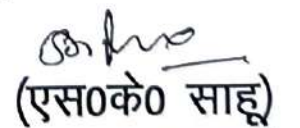 (एस0के0 साहू)